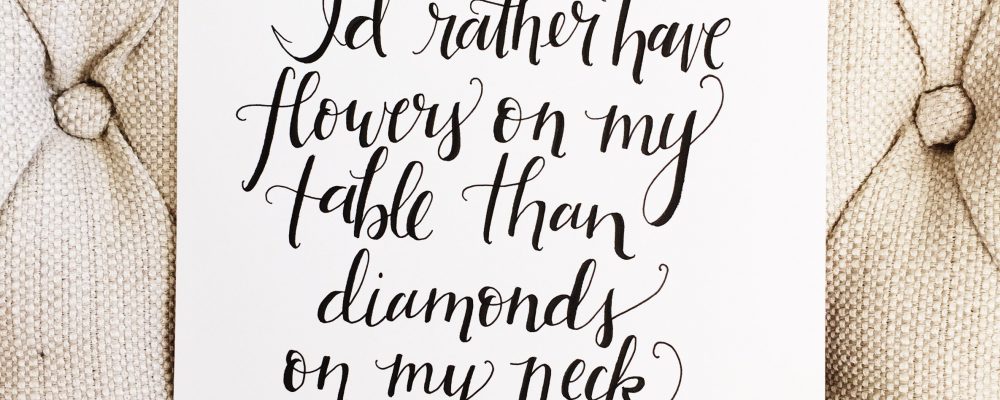 I'd rather have
flowers on my
table than
diamonds
on my neck